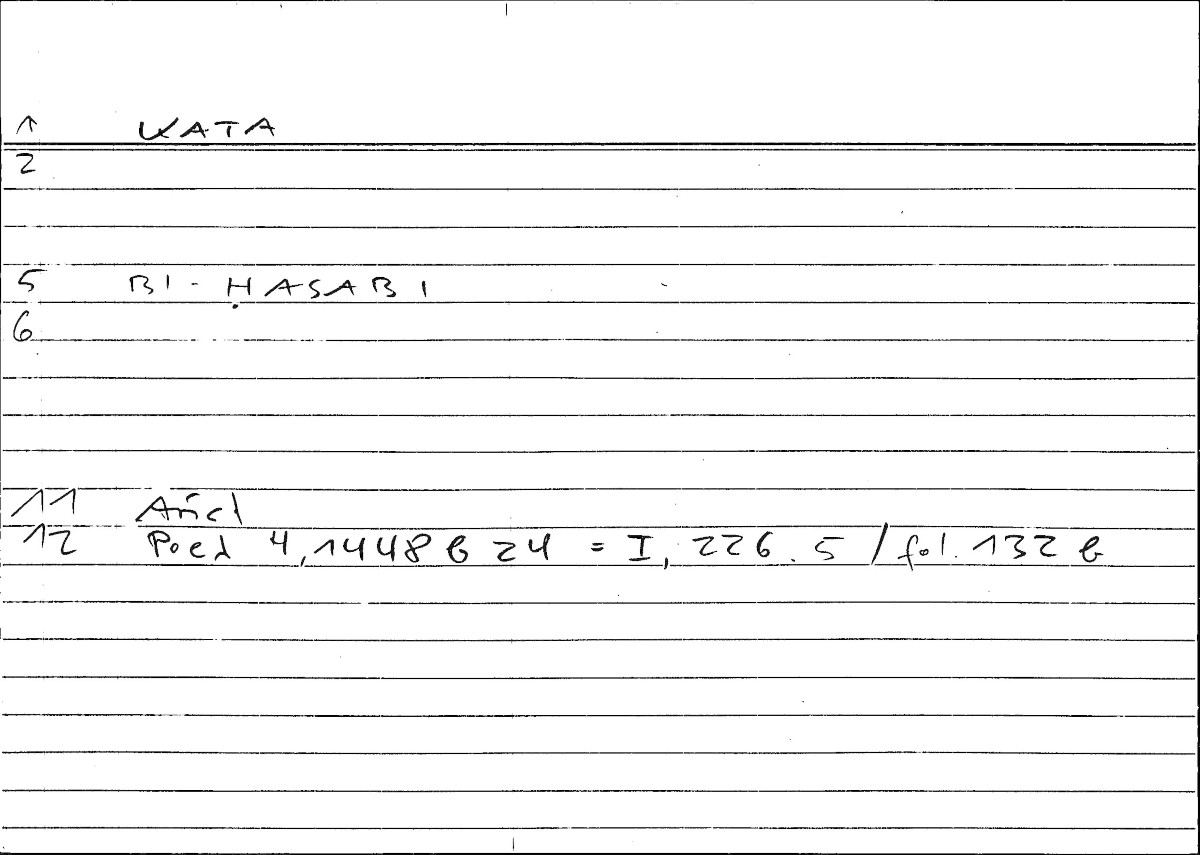 1 KATA
2
5 BI-ḤASABI
6
11 Arist
12 Poet 4, 1448 b 24 = I, 226.5 / fol. 132 b